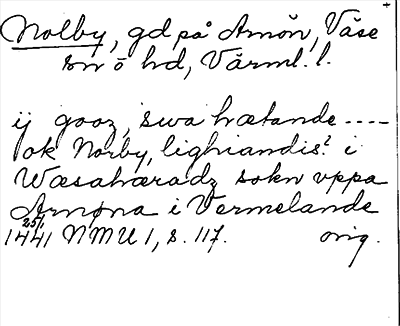 Nolby, gd på Arnön, Väse
sn ō hd, Värml. l.
ij gooz, swa hætande ----
ok Norby, lighiandis? i
Wæsahæradz sokn vppa
Arnøna i Vermelande
25/1 1441 NMU 1, s. 117. orig.